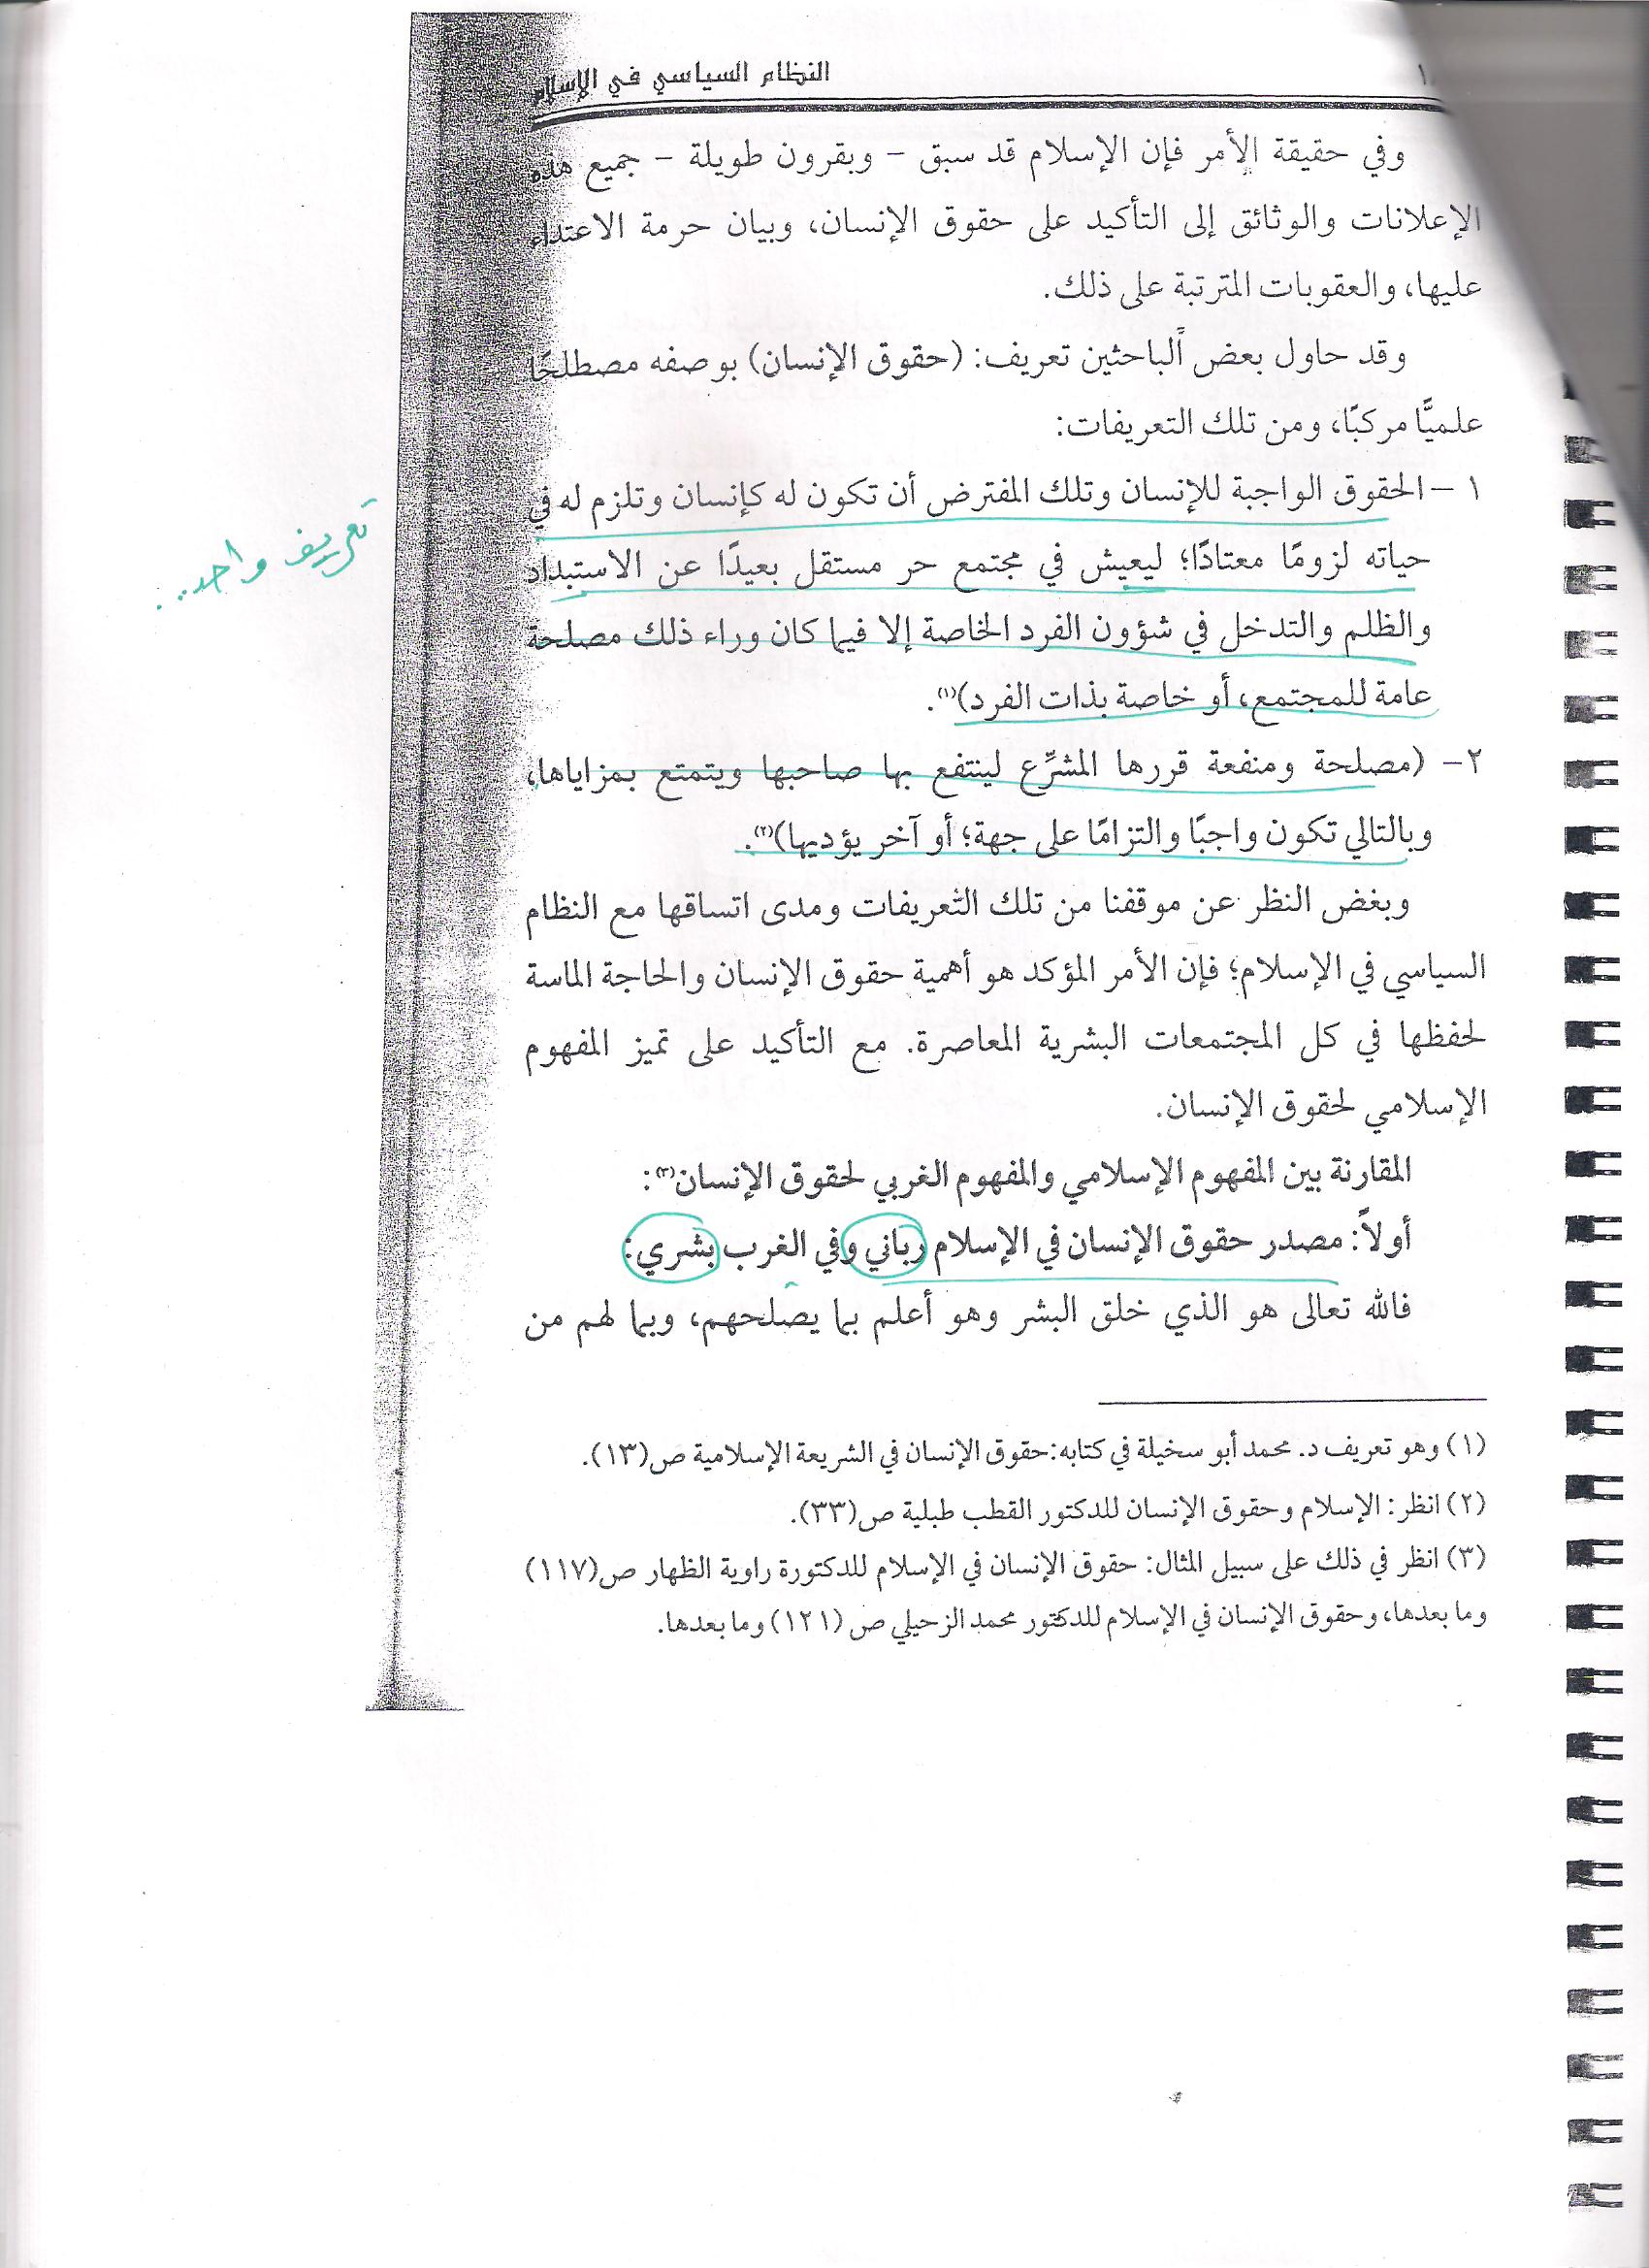 النظام السياسي في الإسلام
وفي حقيقة الأمر فإن الإسلام قد سبق – وبقرون طويلة – جميع هذه
الإعلانات والوثائق إلى التأكيد على حقوق الإنسان، وبيان حرمة الاعتداء
عليها، والعقوبات المترتبة على ذلك.
وقد حاول بعض الباحثين تعريف: (حقوق الإنسان) بوصفه مصطلحًا
علميًّا مركبًا، ومن تلك التعريفات:
١ – الحقوق الواجبة للإنسان وتلك المفترض أن تكون له كإنسان وتلزم له في
حياته لزومًا معتادًا؛ ليعيش في مجتمع حر مستقل بعيدًا عن الاستبداد
والظلم والتدخل في شؤون الفرد الخاصة إلا فيما كان وراء ذلك مصلحة
عامة للمجتمع، أو خاصة بذات الفرد)(١).
تعريف واحد..
٢- (مصلحة ومنفعة قررها المشرِّع لينتفع بها صاحبها ويتمتع بمزاياها،
وبالتالي تكون واجبًا والتزامًا على جهة؛ أو آخر يؤديها)(٢).
وبغض النظر عن موقفنا من تلك التعريفات ومدى اتساقها مع النظام
السياسي في الإسلام؛ فإن الأمر المؤكد هو أهمية حقوق الإنسان والحاجة الماسة
لحفظها في كل المجتمعات البشرية المعاصرة. مع التأكيد على تميز المفهوم
الإسلامي لحقوق الإنسان.
المقارنة بين المفهوم الإسلامي والمفهوم الغربي لحقوق الإنسان(٣):
أولاً: مصدر حقوق الإنسان في الإسلام رباني وفي الغرب بشري:
فالله تعالى هو الذي خلق البشر وهو أعلم بما يصلحهم، وبما لهم من
(١) وهو تعريف د. محمد أبو سخيلة في كتابه: حقوق الإنسان في الشريعة الإسلامية ص(١٣).
(٢) انظر: الإسلام وحقوق الإنسان للدكتور القطب طبلية ص(٣٣).
(٣) انظر في ذلك على سبيل المثال: حقوق الإنسان في الإسلام للدكتورة راوية الظهار ص(١١٧)
وما بعدها، وحقوق الإنسان في الإسلام للدكتور محمد الزحيلي ص (١٢١) وما بعدها.